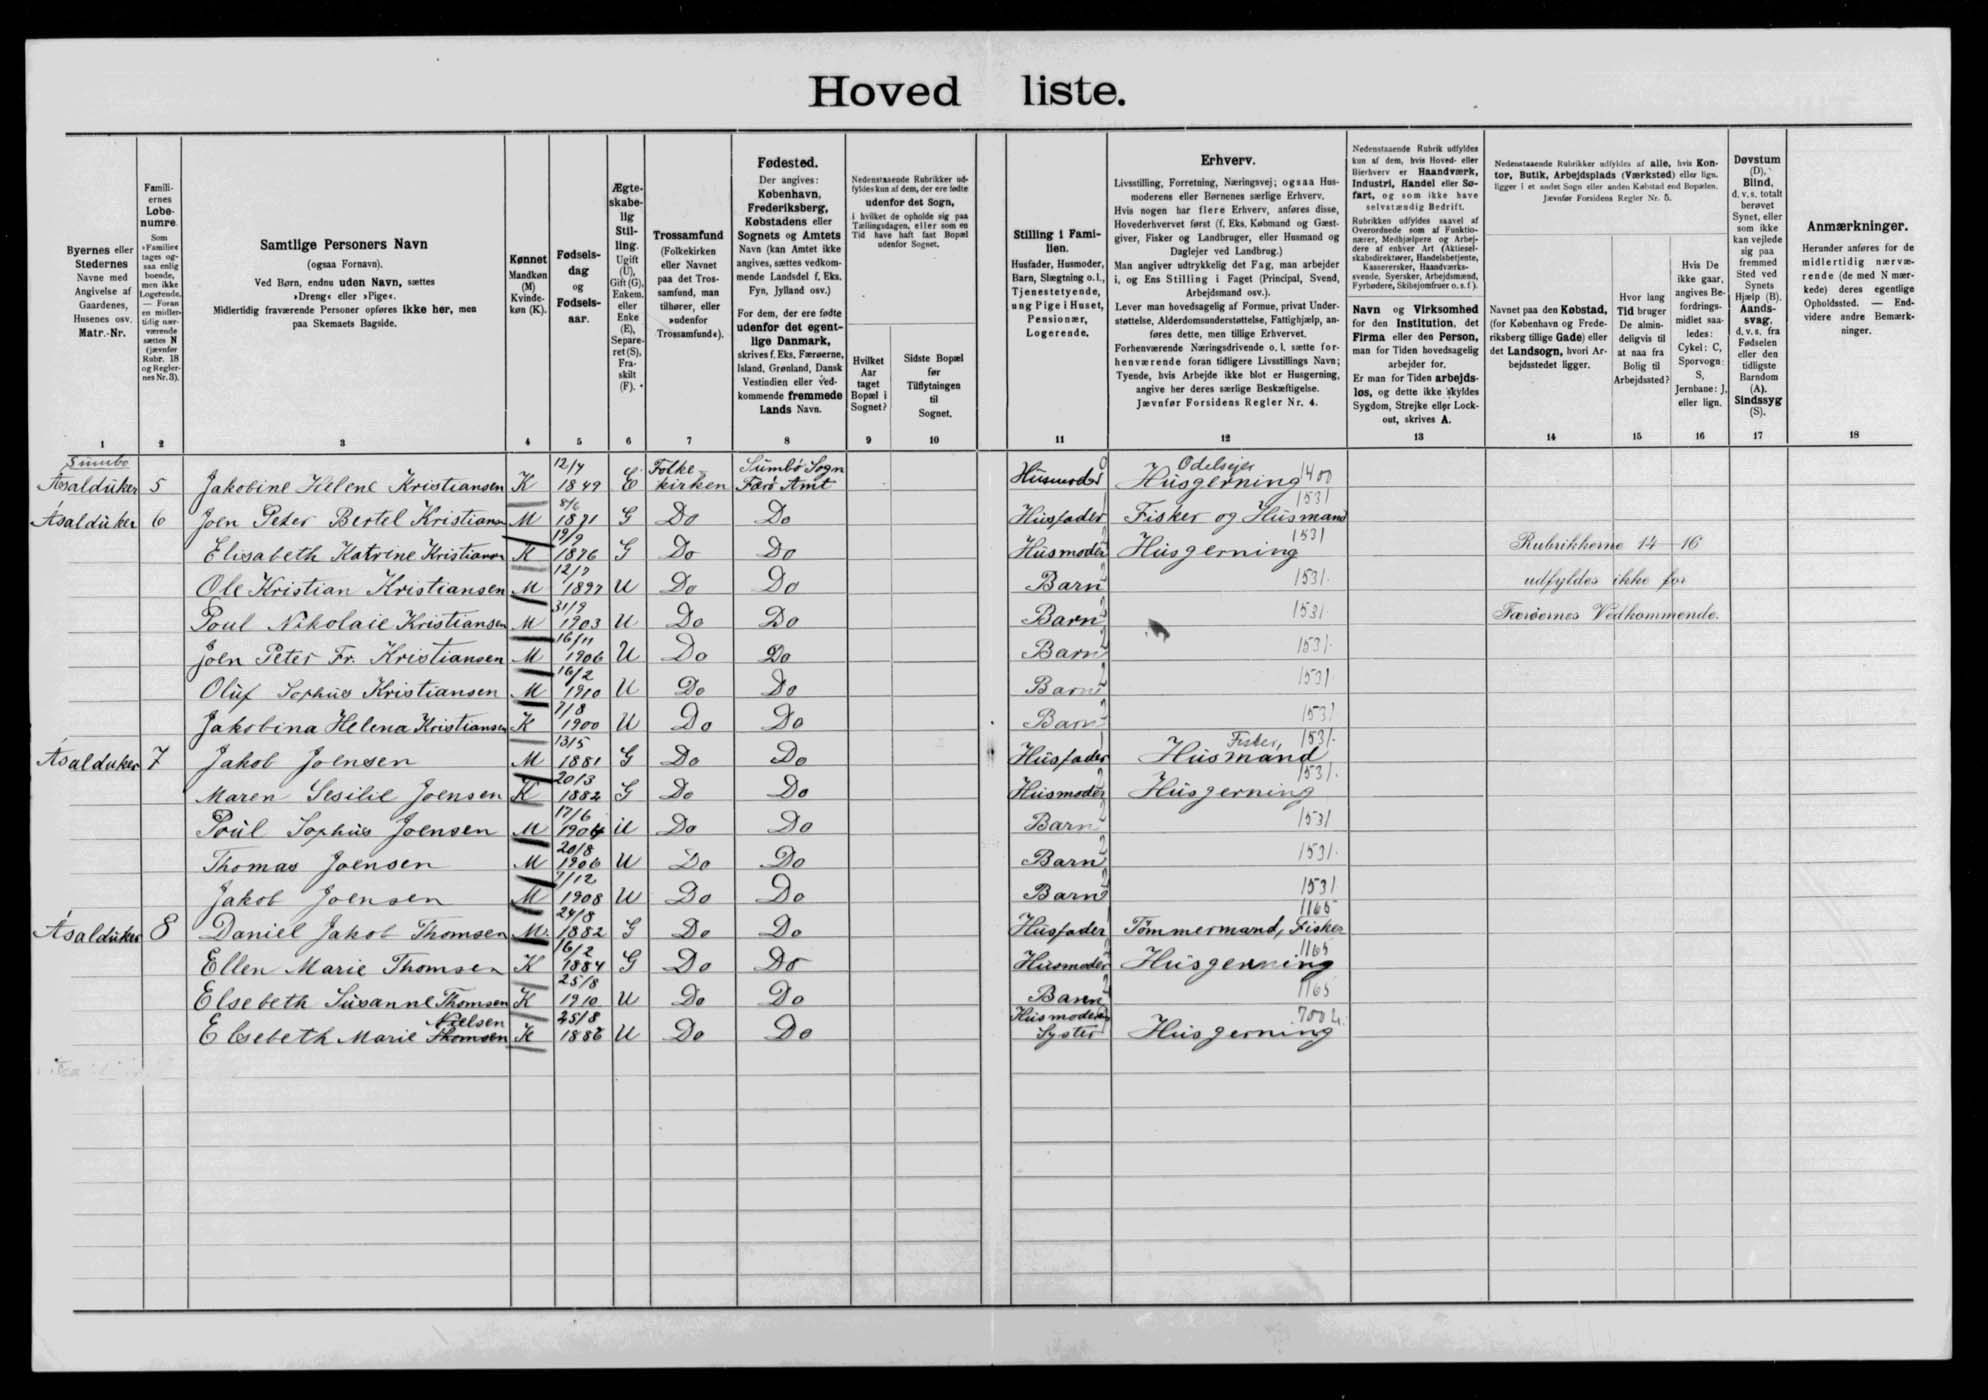 Hoved liste.
Byernes eller Stedernes Navne med Angivelse af Gaardenes, Husenes osv. Matr.-Nr.
Familiernes Løbenumre.
Som »Familie« tages ogsaa enlig boende, men ikke Logerende. — Foran en midlertidig nærværende sættes N (jævnfør Rubr. 18 og Regler nes Nr. 3).
Samtlige Personers Navn
(ogsaa Fornavn).
Ved Børn, endnu uden Navn, sættes
»Dreng« eller »Pige«.
Midlertidig fraværende Personer opføres ikke her, men
paa Skemaets Bagside.
Kønnet
Mandkøn (M) Kvindekøn (K).
Fødselsdag og Fødselsaar.
Ægteskabelig Stilling.
Ugift (U), Gift (G), Enkem. eller Enke (E), Separeret (S), Fraskilt (F).
Trossamfund
(Folkekirken eller Navnet paa det Trossamfund, man tilhører, eller »udenfor Trossamfund«).
Fødested.
Der angives:
København, Frederiksberg, Købstadens eller Sognets og Amtets Navn (kan Amtet ikke angives, sættes vedkommende Landsdel f. Eks. Fyn, Jylland osv.)
For dem, der ere fødte udenfor det egentlige Danmark, skrives f. Eks. Færøerne, Island, Grønland, Dansk Vestindien eller vedkommende fremmede Lands Navn.
Nedenstaaende Rubrikker udfyldes kun af dem, der ere fødte udenfor det Sogn, i hvilket de opholde sig paa Tællingsdagen, eller som en Tid have haft fast Bopæl udenfor Sognet.
Hvilket Aar taget Bopæl i Sognet?
Sidste Bopæl før Tilflytningen til Sognet.
Stilling i Familien.
Husfader, Husmoder, Barn, Slægtning o. l., Tjenestetyende, ung Pige i Huset, Pensionær, Logerende.
Erhverv.
Livsstilling, Forretning, Næringsvej; ogsaa Husmoderens eller Børnenes særlige Erhverv.
Hvis nogen har flere Erhverv, anføres disse, Hovederhvervet først (f. Eks. Købmand og Gæstgiver, Fisker og Landbruger, eller Husmand og Daglejer ved Landbrug.)
Man angiver udtrykkelig det Fag, man arbejder i, og Ens Stilling i Faget (Principal, Svend, Arbejdsmand osv.).
Lever man hovedsagelig af Formue, privat Understøttelse, Alderdomsunderstøttelse, Fattighjælp, anføres dette, men tillige Erhvervet.
Forhenværende Næringsdrivende o. l. sætte forhenværende foran tidligere Livsstillings Navn;
Tyende, hvis Arbejde ikke blot er Husgerning, angive her deres særlige Beskæftigelse.
Jævnfør Forsidens Regler Nr. 4.
Nedenstaaende Rubrik udfyldes kun af dem, hvis Hoved- eller Bierhverv er Haandværk, Industri, Handel eller Søfart, og som ikke have selvstændig Bedrift.
Rubrikken udfyldes saavel af Overordnede som af Funktionærer, Medhjælpere og Arbejdere af enhver Art (Aktieselskabsdirektører, Handelsbetjente, Kassererske, Haandværkssvende, Syersker, Arbejdsmænd, Fyrbødere, Skibsjomfruer o. s. f.).
Navn og Virksomhed for den Institution, det Firma eller den Person, man for Tiden hovedsagelig arbejder for.
Er man for Tiden arbejdsløs, og dette ikke skyldes Sygdom, Strejke eller Lockout, skrives A.
Nedenstaaende Rubrikker udfyldes af alle, hvis Kontor, Butik, Arbejdsplads (Værksted) eller lign. ligger i et andet Sogn eller anden Købstad end Bopælen.
Jævnfør Forsidens Regler Nr. 5.
Navnet paa den Købstad, (for København og Frederiksberg tillige Gade) eller det Landsogn, hvori Arbejdsstedet ligger.
Hvor lang Tid bruger De almindeligvis til at naa fra Bolig til Arbejdssted?
Hvis De ikke gaar, angives Befordringsmidlet saaledes: Cykel: C, Sporvogn: S, Jernbane: J, eller lign.
Døvstum (D), Blind, d. v. s. totalt berøvet Synet, eller som ikke kan vejlede sig paa fremmed Sted ved Synets Hjælp (B). Aandssvag, d. v. s. fra Fødselen eller den tidligste Barndom (A). Sindssyg (S).
Anmærkninger.
Herunder anføres for de midlertidig nærværende (de med N mærkede) deres egentlige Opholdssted. — Endvidere andre Bemærkninger.
1 2 3 4 5 6 7 8 9 10 11 12 13 14 15 16 17 18
Sumbø 12/7 Folke- Sumbø Sogn Odelsejer
Ásaldúker 5 Jakobine Helene Kristiansen K 1849 E kirken Færø Amt Husmoder 0 Husgerning 1400
Ásaldúker 6 Joen Peter Bertel Kristiansen M 8/6 1871 G Do Do Husfader 1 Fisker og Husmand 1531
Elisabeth Katrine Kristiansen K 19/9 1876 G Do Do Husmoder 2 Husgerning 1531 Rubrikkerne 14–16
Ole Kristian Kristiansen M 12/7 1897 U Do Do Barn 2 1531. udfyldes ikke for
Poul Nikolaie Kristiansen M 31/9 1903 U Do Do Barn 2 1531. Færøernes Vedkommende.
Joen Peter Fr. Kristiansen M 16/11 1906 U Do Do Barn 2 1531.
Oluf Sophus Kristiansen M 16/2 1910 U Do Do Barn 2 1531
Jakobina Helena Kristiansen K 7/8 1900 U Do Do Barn 2 1531
Ásaldúker 7 Jakob Joensen M 13/5 1881 G Do Do Husfader 1 Fisker, Husmand 1531.
Maren Sesilie Joensen K 20/3 1882 G Do Do Husmoder 2 Husgerning 1531.
Poul Sophus Joensen M 17/6 1904 U Do Do Barn 2 1531
Thomas Joensen M 20/8 1906 U Do Do Barn 2 1531.
Jakob Joensen M 1/12 1908 U Do Do Barn 2 1531
Ásaldúker 8 Daniel Jakob Thomsen M. 24/8 1882 G Do Do Husfader 1 Tømmermand, Fisker 1165
Ellen Marie Thomsen K 16/2 1884 G Do Do Husmoder 2 Husgerning 1165
Elsebeth Susanne Thomsen K 25/8 1910 U Do Do Barn 2 1165
Elsebeth Marie Thomsen Nielsen K 25/8 1886 U Do Do Husmoders Syster Husgerning 7002.